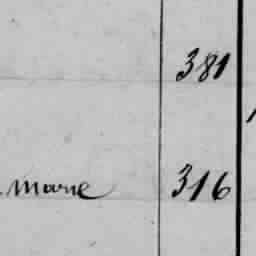 381
marie 316